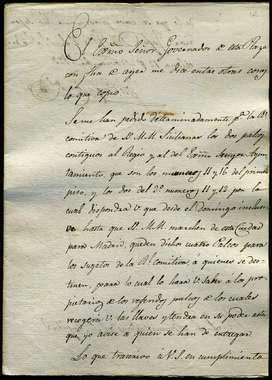 El Exmo Señor Governador de esta Plaza
con fha de ayer me dice entre otras cosas
lo que copio
Se me han pedido determinadamente pa la Rl
comitiva de S.S. M.M. Sicilianas los dos palcos
contiguos al Regio y al del Exmo Ayun
tamiento, que son los numeros 11 y 16 del primer
piso, y los dos del 2o numeros 11 y 12 por lo
cual dispondrá V que desde el Domingo inclusi
ve hasta que S.S. M.M. marchen de esta Ciudad
para Madrid, queden dichos cuatro Palcos para
los sugetos de la Rl comitiva a quienes se des
tinen, para lo cual lo hará V saber a los pro
pietarios de los referidos palcos de los cuales
recogerá V las llaves y tendrá en su poder asta
que yo avise a quien se han de entregar
Lo que traslado a V.S. en cumplimiento